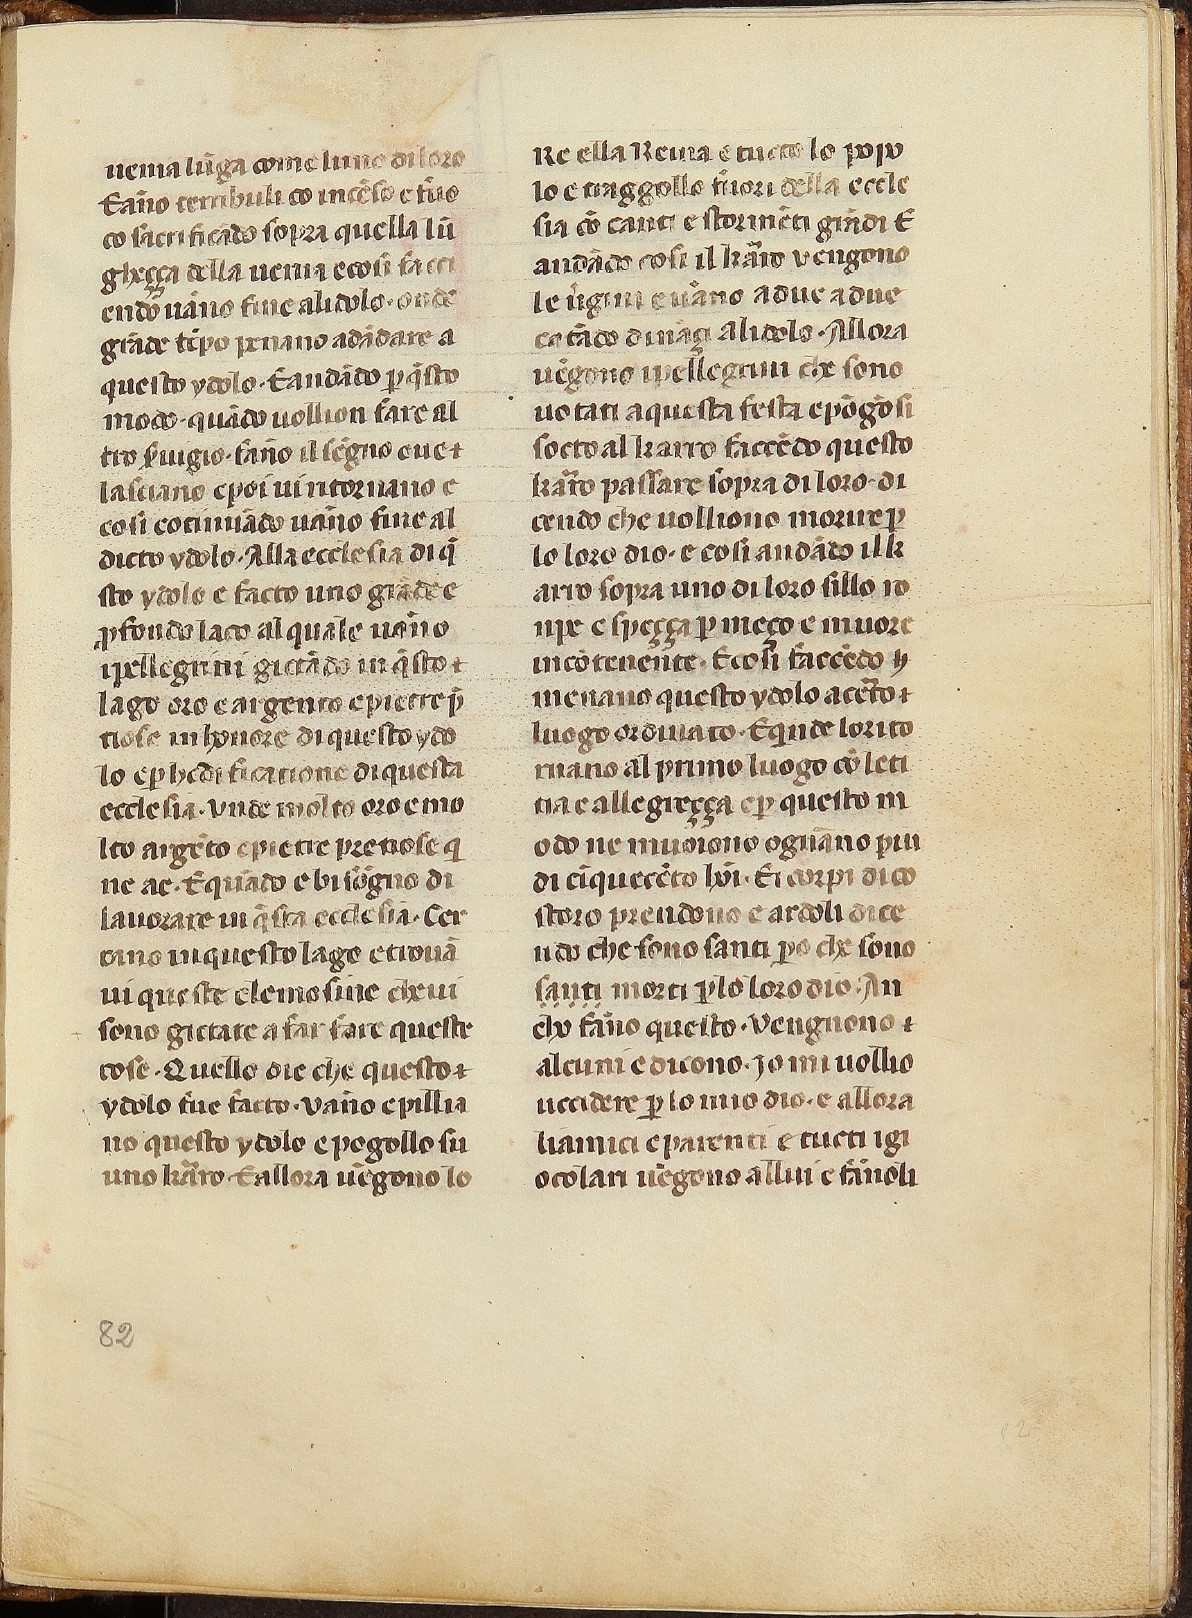 uenia lūga come luno di loro
Eāno terribuli co incēso e fuo
co sacrificādo sopra quella lū
gheçça della uenia e cosi facci
endo uāno fine alidolo · onde
grāde tēpo penano adādare a
questo ydolo · Eandādo p q̄sto
modo · quādo uollion fare al
tro s̄uigio · fāno il segno oue
lasciano epoi ui ritornano e
cosi cotinuādo uāno fine al
dicto ydolo · Alla ecclesia di q̄
sto ydolo e facto uno grāde e
p̱fondo laco al quale uāno
ipellegrini gictādo in q̄sto
lago oro e argento epietre p̄
tiose in honore di questo ydo
lo ep̱ hedificatione di questa
ecclesia · Vnde molto oro emo
lto argēto epietre pretiose q
ne ae · Equādo e bisōgno di
lauorare in q̄sta ecclesia · Cer
cano in questo lago e trouā
ui queste elemosine cheui
sono gictate a far fare queste
cose · Quello die che questo
ydolo fue facto · Vāno epillia
no questo ydolo e pogollo su
uno kāro · Eallora uēgono lo
Re ella Reina e tucto lo popo
lo e traggollo fuori della eccle
sia cō canti e stormēti grādi E
andādo cosi il kāro vengono
le ūgini euāno adue adue
cātādo dināçi alidolo · Allora
uēgono ipellegrini che sono
uotati aquesta festa epōgōsi
socto al karro faccēdo questo
kāro passare sopra di loro · di
cendo che uolliono morire p̱
lo loro dio · e cosi andādo il k
arro sopra uno di loro sillo ro
npe e speçça p̱ meço e muore
incōtenente · Ecosi faccēdo
menano questo ydolo acērto
luogo ordinato · Equide lo rito
rnano al primo luogo cō leti
tia e allegreçça ep̱ questo m
odo ne muoiono ognāno piu
di cīquecēto hōi · Ei corpi di co
storo prendono e ardoli dice
ndo che sono santi p̱o che sono
santi morti p̱lo loro dio · An
cho fāno questo · Vengnono
alcuni e dicono · Jo mi uollio
uccidere p̱ lo mio dio · e allora
liamici eparenti e tucti igi
ocolari uēgono allui e fānoli
82